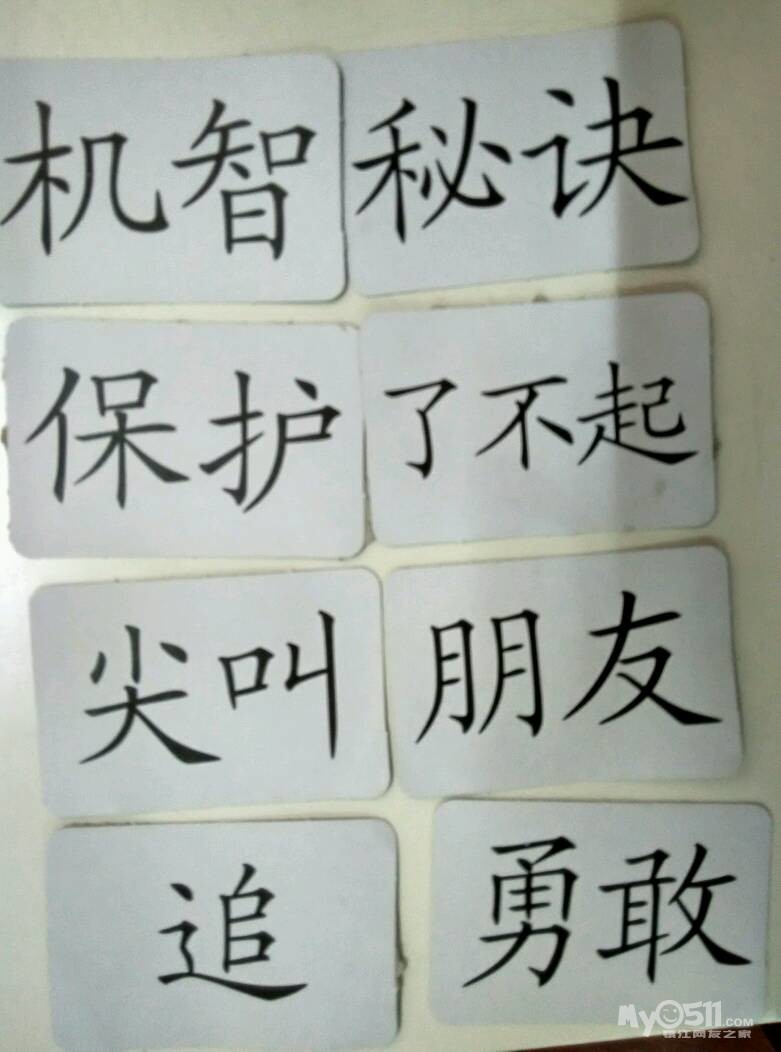 机智 秘诀
保护 了不起
尖叫 朋友
追 勇敢
My0511.COM
镇江网友之家